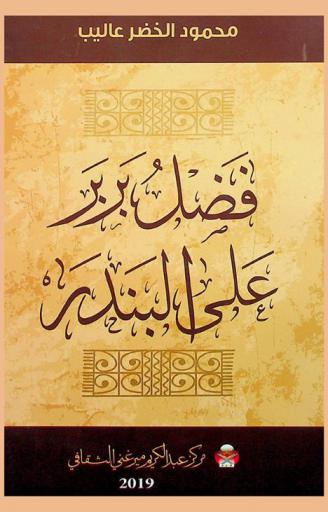 محمود الخضر عاليب
فَضْلُ بَربَر
عَلَى البَندَر
مركز عبد الكريم ميرغني الثقافي
2019